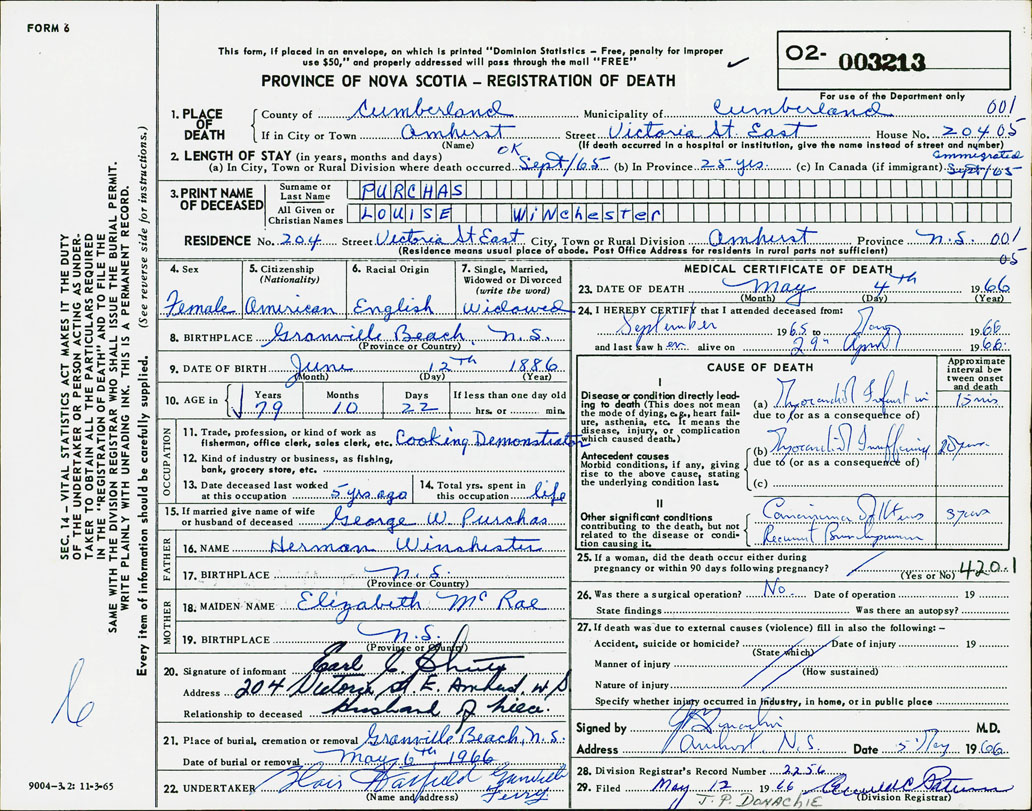 FORM 6
This form, if placed in an envelope, on which is printed "Dominion Statistics – Free, penalty for improper
use $50," and properly addressed will pass through the mail "FREE"
PROVINCE OF NOVA SCOTIA – REGISTRATION OF DEATH
O2- 003213
For use of the Department only
1. PLACE OF DEATH County of Cumberland Municipality of Cumberland 001
If in City or Town Amherst Street Victoria St. East House No. 204 05
(Name) (If death occurred in a hospital or institution, give the name instead of street and number)
OK
2. LENGTH OF STAY (in years, months and days) immigrated
(a) In City, Town or Rural Division where death occurred Sept/65 (b) In Province 25 yrs. (c) In Canada (if immigrant) Sept/65
3. PRINT NAME OF DECEASED
Surname or Last Name PURCHAS
All Given or Christian Names LOUISE WINCHESTER
RESIDENCE No. 204 Street Victoria St East City, Town or Rural Division Amherst Province N.S. 001
(Residence means usual place of abode. Post Office Address for residents in rural parts not sufficient) 05
4. Sex Female
5. Citizenship (Nationality) American
6. Racial Origin English
7. Single, Married, Widowed or Divorced (write the word) Widowed
8. BIRTHPLACE Granville Beach, N.S.
(Province or Country)
9. DATE OF BIRTH June 12th 1886
(Month) (Day) (Year)
10. AGE in Years 79 Months 10 Days 22 If less than one day old hrs. or min.
OCCUPATION
11. Trade, profession, or kind of work as
fisherman, office clerk, sales clerk, etc. Cooking Demonstrator
12. Kind of industry or business, as fishing,
bank, grocery store, etc.
13. Date deceased last worked at this occupation 5 yrs ago
14. Total yrs. spent in this occupation life
15. If married give name of wife or husband of deceased George W. Purchas
FATHER
16. NAME Herman Winchester
17. BIRTHPLACE N.S.
(Province or Country)
MOTHER
18. MAIDEN NAME Elizabeth McRae
19. BIRTHPLACE N.S.
(Province or Country)
20. Signature of informant Earl C.
Address 204 Victoria St. E. Amherst, N.S.
Relationship to deceased Husband of niece.
21. Place of burial, cremation or removal Granville Beach, N.S.
Date of burial or removal May 6th 1966
22. UNDERTAKER Blair Granville Ferry
(Name and address)
MEDICAL CERTIFICATE OF DEATH
23. DATE OF DEATH May 4th 1966
(Month) (Day) (Year)
24. I HEREBY CERTIFY that I attended deceased from:
September 1965 to May 1966
and last saw her alive on 29th April 1966
CAUSE OF DEATH
Approximate interval between onset and death
I
Disease or condition directly leading to death (This does not mean
the mode of dying, e.g., heart failure, asthenia, etc. It means the
disease, injury, or complication which caused death.)
(a) Myocardial Infarction 15 min
due to (or as a consequence of)
Antecedent causes
Morbid conditions, if any, giving
rise to the above cause, stating
the underlying condition last.
(b) Myocardial Insufficiency years
due to (or as a consequence of)
(c)
II
Other significant conditions
contributing to the death, but not
related to the disease or condition causing it.
Carcinoma of Uterus 3 years
Recurrent
25. If a woman, did the death occur either during
pregnancy or within 90 days following pregnancy? (Yes or No) 420.1
26. Was there a surgical operation? No. Date of operation 19
State findings Was there an autopsy?
27. If death was due to external causes (violence) fill in also the following: –
Accident, suicide or homicide? Date of injury 19
(State which)
Manner of injury
(How sustained)
Nature of injury
Specify whether injury occurred in Industry, in home, or in public place
Signed by M.D.
Address Amherst, N.S. Date 5 May 1966
28. Division Registrar's Record Number 2256
29. Filed May 12 1966
(Division Registrar)
J. P. DONACHIE
SEC. 14 – VITAL STATISTICS ACT MAKES IT THE DUTY
OF THE UNDERTAKER OR PERSON ACTING AS UNDERTAKER TO OBTAIN ALL THE PARTICULARS REQUIRED
IN THE "REGISTRATION OF DEATH" AND TO FILE THE
SAME WITH THE DIVISION REGISTRAR WHO SHALL ISSUE THE BURIAL PERMIT.
WRITE PLAINLY WITH UNFADING INK. THIS IS A PERMANENT RECORD.
Every item of information should be carefully supplied. (See reverse side for instructions.)
6
9004-3.2: 11-3-65